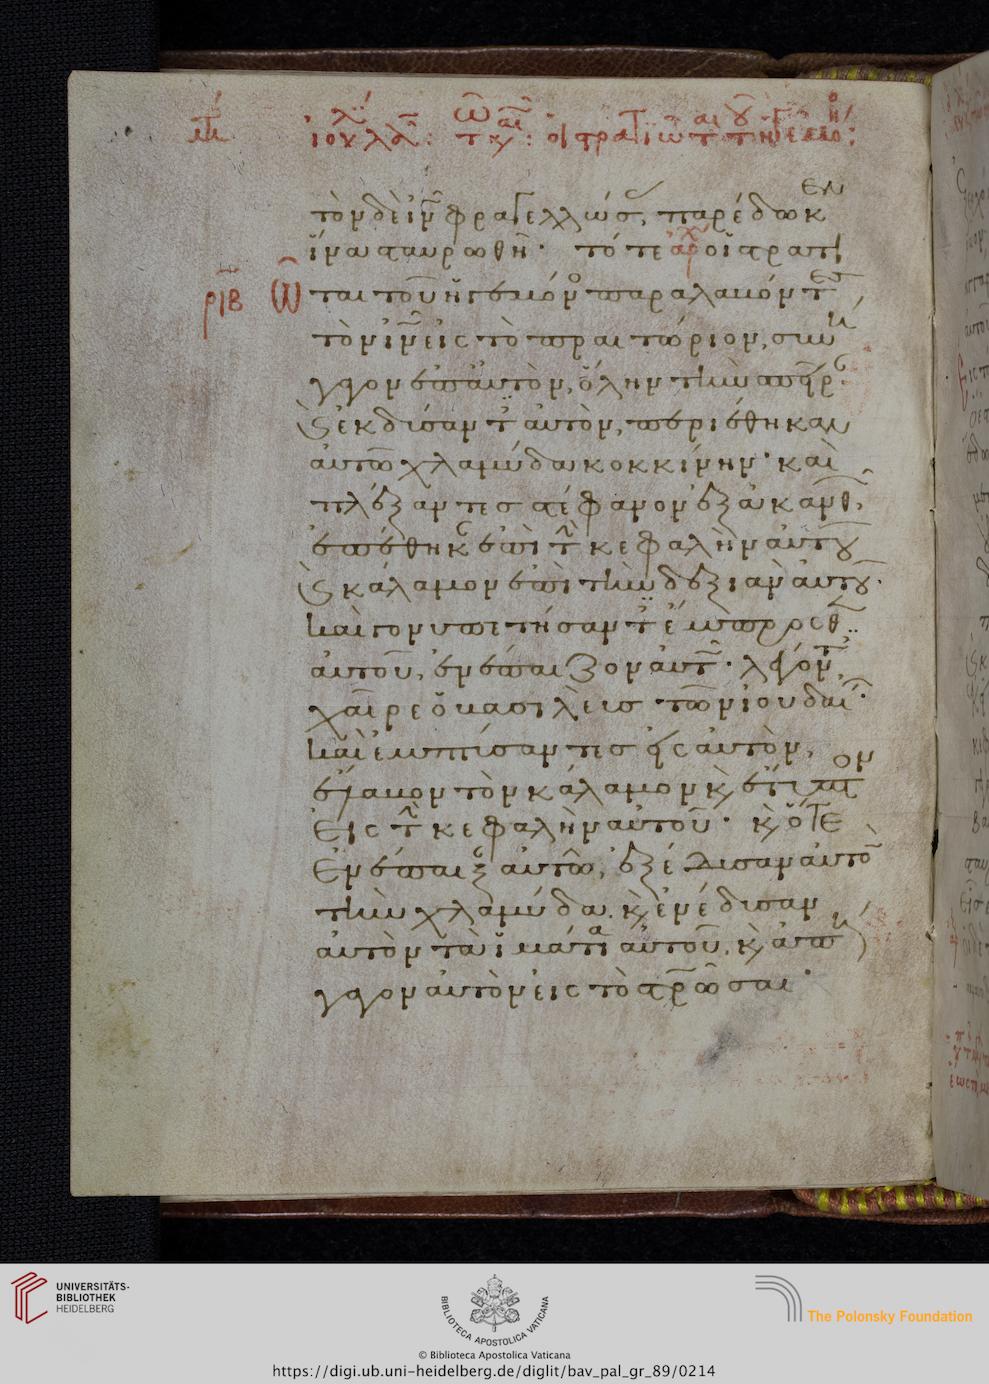 τὸν δὲ ἰν̅ φραγελλώσας, παρέδωκεν
ἵνα σταυρωθῆ. τότε οἱ στρατι
ῶται τοῦ ἡγεμόνος παραλαβόντες
τὸν ἰν̅ εἰς τὸ πραιτώριον, συνή
γαγον ἐπ' αὐτὸν, ὅλην τὴν σπεῖραν
Καὶ ἐκδύσαντες αὐτὸν, περιέθηκαν
αὐτῶ χλαμύδα κοκκίνην. καὶ
πλέξαντες στέφανον ἐξ ἀκανθῶν,
ἐπέθηκαν ἐπὶ τὴν κεφαλὴν αὐτοῦ
Καὶ κάλαμον ἐπὶ τὴν δεξιὰν αὐτοῦ.
καὶ γονυπετήσαντες ἔμπροσθεν
αὐτοῦ, ἐνέπαιζον αὐτῶ. λέγοντες
χαῖρε ὁ βασιλεὺς τῶν ἰουδαίων.
καὶ ἐμπτύσαντες εἰς αὐτὸν,
ἔλαβον τὸν κάλαμον καὶ ἔτυπτον
Εἰς τὴν κεφαλὴν αὐτοῦ. καὶ ὅτε
Ἐνέπαιξαν αὐτῶ, ἐξέδυσαν αὐτὸν
τὴν χλαμύδα. καὶ ἐνέδυσαν
αὐτὸν τὰ ἱμάτια αὐτοῦ, καὶ ἀπή
γαγον αὐτὸν εἰς τὸ στρῶσαι.
UNIVERSITÄTS-
BIBLIOTHEK
HEIDELBERG
BIBLIOTECA APOSTOLICA VATICANA
The Polonsky Foundation
© Biblioteca Apostolica Vaticana
https://digi.ub.uni-heidelberg.de/diglit/bav_pal_gr_89/0214